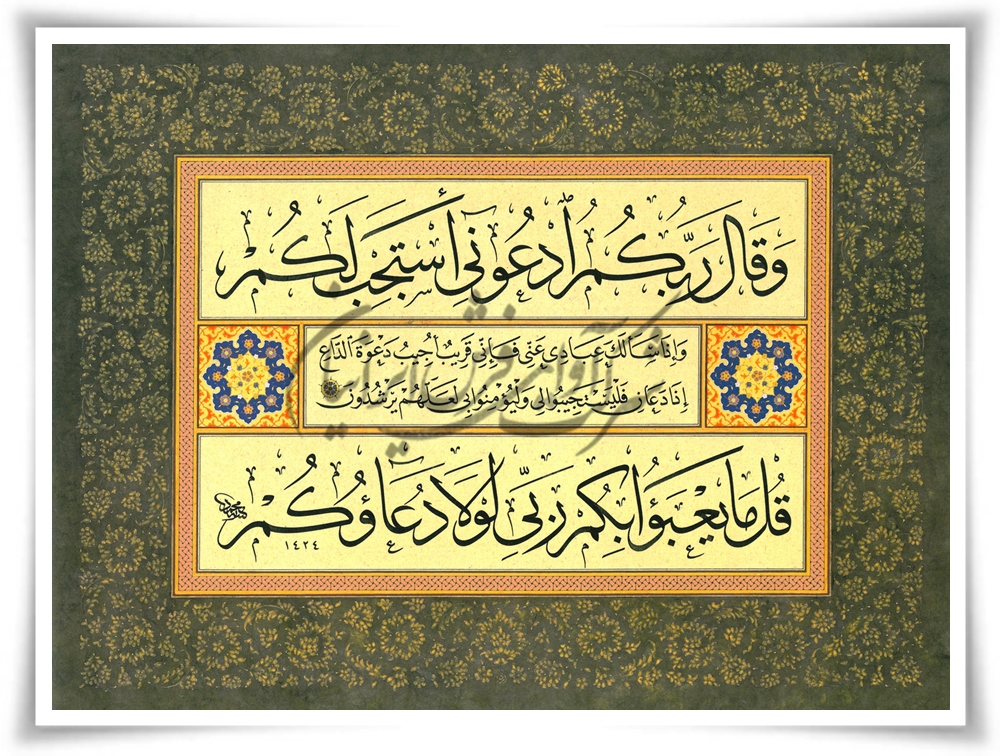 وَقَالَ رَبُّكُمُ ٱدْعُونِىٓ أَسْتَجِبْ لَكُمْ
وَإِذَا سَأَلَكَ عِبَادِي عَنِّي فَإِنِّي قَرِيبٌ أُجِيبُ دَعْوَةَ الدَّاعِ
إِذَا دَعَانِ فَلْيَسْتَجِيبُوا لِي وَلْيُؤْمِنُوا بِي لَعَلَّهُمْ يَرْشُدُونَ
قُلْ مَا يَعْبَؤُا بِكُمْ رَبِّي لَوْلَا دُعَاؤُكُمْ
١٤٢٤